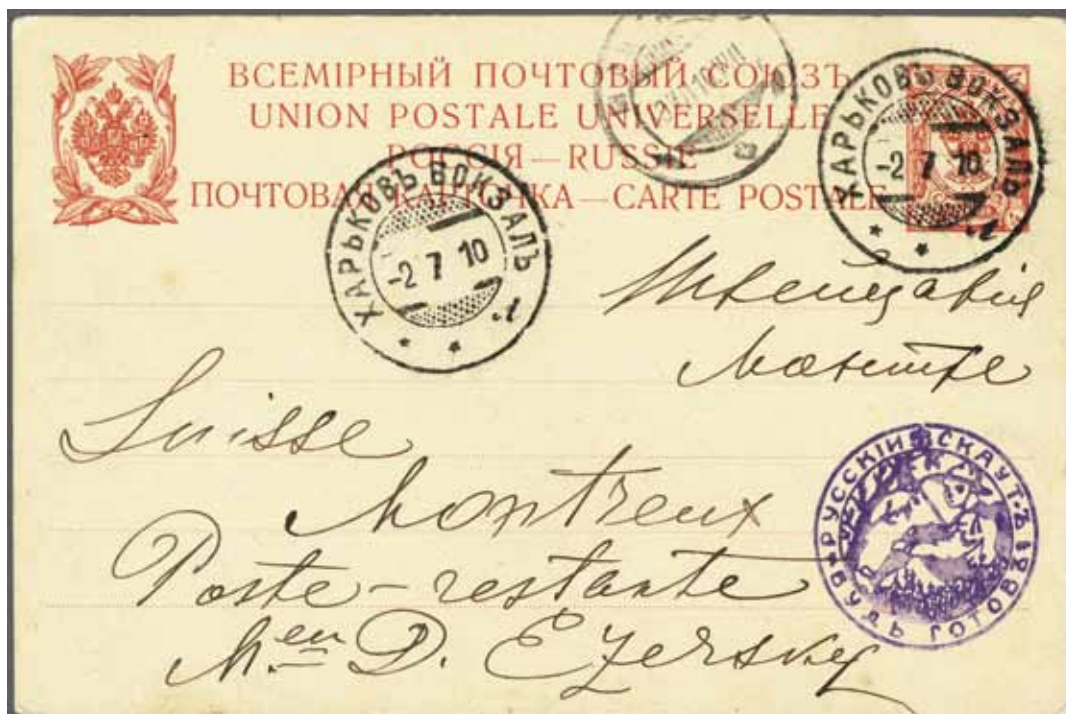 ВСЕМІРНЫЙ ПОЧТОВЫЙ СОЮЗЪ
UNION POSTALE UNIVERSELLE
РОССІЯ — RUSSIE
ПОЧТОВАЯ КАРТОЧКА — CARTE POSTALE
ХАРЬКОВЪ ВОКЗАЛЪ
-2 7 10
ХАРЬКОВЪ ВОКЗАЛЪ
-2 7 10
Швецарія
Монтре
Suisse
Montreux
Poste-restante
M.eu D. Ezersky
РУССКІЙ СКАУТ.Ъ
БУДЬ ГОТОВЪ